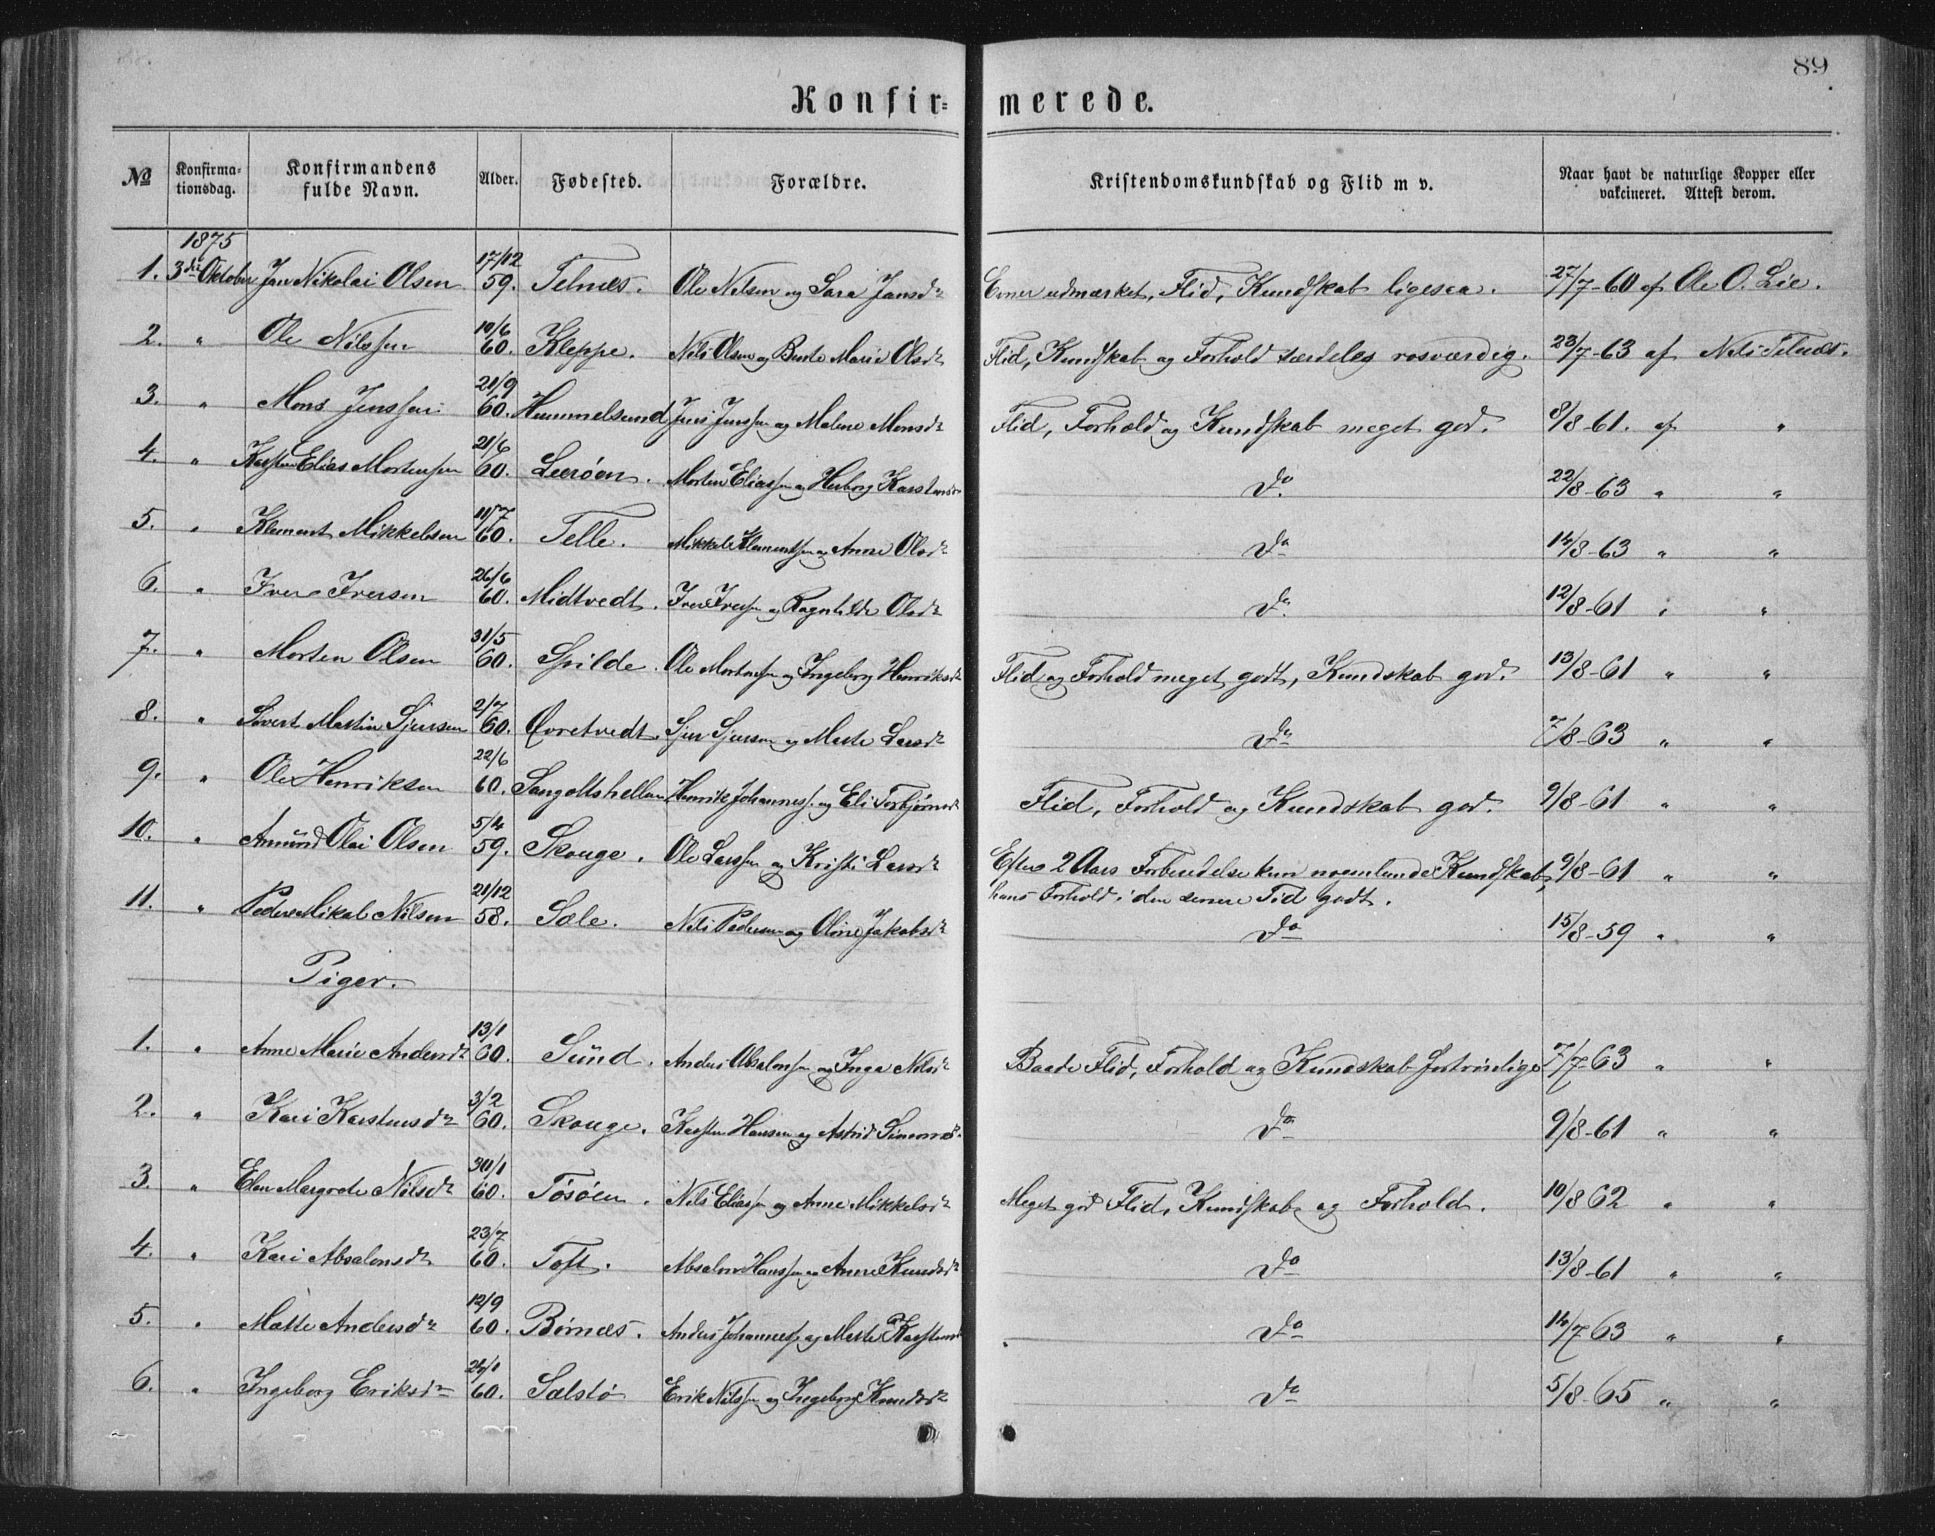 89
Konfir=merede.
№ Konfirma-tionsdag. Konfirmandens fulde Navn. Alder. Fødested. Forældre. Kristendomskundskab og Flid m v. Naar havt de naturlige Kopper eller vakcineret. Attest derom.
1875
1. 3die Oktober Jan Nikolai Olsen 17/12 59. Telnæs. Ole Nilsen og Sara Jansdr Evner udmærket, Flid, Kundskab ligesaa. 27/7-60 af Ole O. Lie.
2. " Ole Nilssen 10/6 60. Kleppe. Nils Olsen og Berte Marie Olsdr Flid, Kundskab og Forhold særdeles rosværdig. 23/7-63 af Nils Telnæs.
3. " Mons Jenssen 21/9 60. Hummelsund Jens Jenssen og Malene Monsdr Flid, Forhold og Kundskab meget god. 8/8-61. af "
4. " Karsten Elias Mortensen 21/6 60. Leerøen. Morten Eliassen og Herborg Karstensdr Do 22/8-63 " "
5. " Klement Mikkelsen 11/7 60. Telle. Mikkel Klementsen og Anne Olsdr Do 14/8-63 " "
6. " Iver Iversen 26/6 60. Midtvedt. Iver Iversen og Ragnhilde Olsdr Do 12/8-61 " "
7. " Morten Olsen 31/5 60. Spilde. Ole Mortensen og Ingeborg Henriksdr Flid og Forhold meget godt, Kundskab god. 13/8-61 " "
8. " Sivert Martin Sjursen 2/7 60. Øvretvedt. Sjur Sjursen og Marte Larsdr Do 7/8-63 " "
9. " Ole Henriksen 22/6 60. Sangoltshellen Henrik Johanness. og Eli Torbjørnsdr Flid, Forhold og Kundskab god. 9/8-61 " "
10. " Amund Olai Olsen 5/4 59. Skouge. Ole Larssen og Kristi Larsdr Efter 2 Aars Forberedelse kun noenlunde Kundskab, 9/8-61 " "
hans Forhold i den senere Tid godt.
11. " Peder Mikal Nilsen 21/12 58. Sæle. Nils Pedersen og Oline Jakobsdr Do 15/8-59 " "
Piger.
1. " Anne Marie Andersdr 13/1 60. Sund. Anders Absalonsen og Inga Nilsdr Baade Flid, Forhold og Kundskab fortrinlige 7/7-63 " "
2. " Kari Karstensdr 3/2 60. Skouge. Karsten Hansen og Astrid Simonsdr Do 9/8-61 " "
3. " Elen Margrete Nilsdr 30/1 60. Tøsøen. Nils Eliassen og Anne Mikkelsdr Meget god Flid, Kundskab og Forhold. 10/8 62 " "
4. " Kari Absalonsdr 23/7 60. Toft. Absalon Hanssen og Anne Knudsdr Do 13/8-61 " "
5. " Matte Andersdr 12/9 60. Børnæs. Anders Johannessen og Marte Karstensdr Do 14/7 63 " "
6. " Ingeborg Eriksdr 24/1 60. Sælstø Erik Nilssen og Ingeborg Knudsdr Do 5/8-65 " "